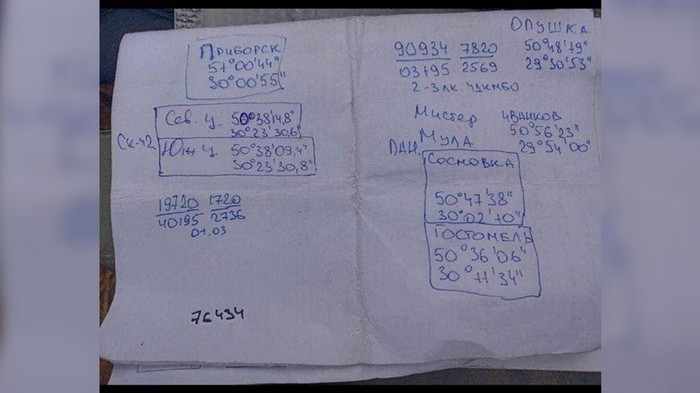 Приборск
51°00'44"
30°00'55"
Сев. ц. 50°38'14,8"
30°23'30,6"
СК-42
Юж ц. 50°38'09,4"
30°23'30,8"
19720 1720
40195 2736
01.03
76434
Опушка
50°48'19"
29°30'53"
90934 7820
03795 2569
Мистер Иванков
50°56'23"
29°54'00"
Мула
Сосновка
50°47'38"
30°02'10"
Гостомель
50°36'06"
30°11'34"